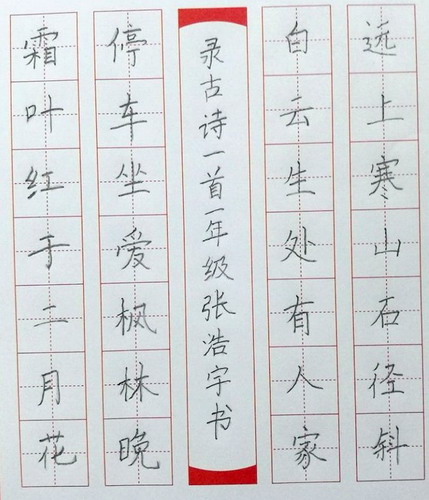 远上寒山石径斜
白云生处有人家
录古诗一首一年级张浩宇书
停车坐爱枫林晚
霜叶红于二月花